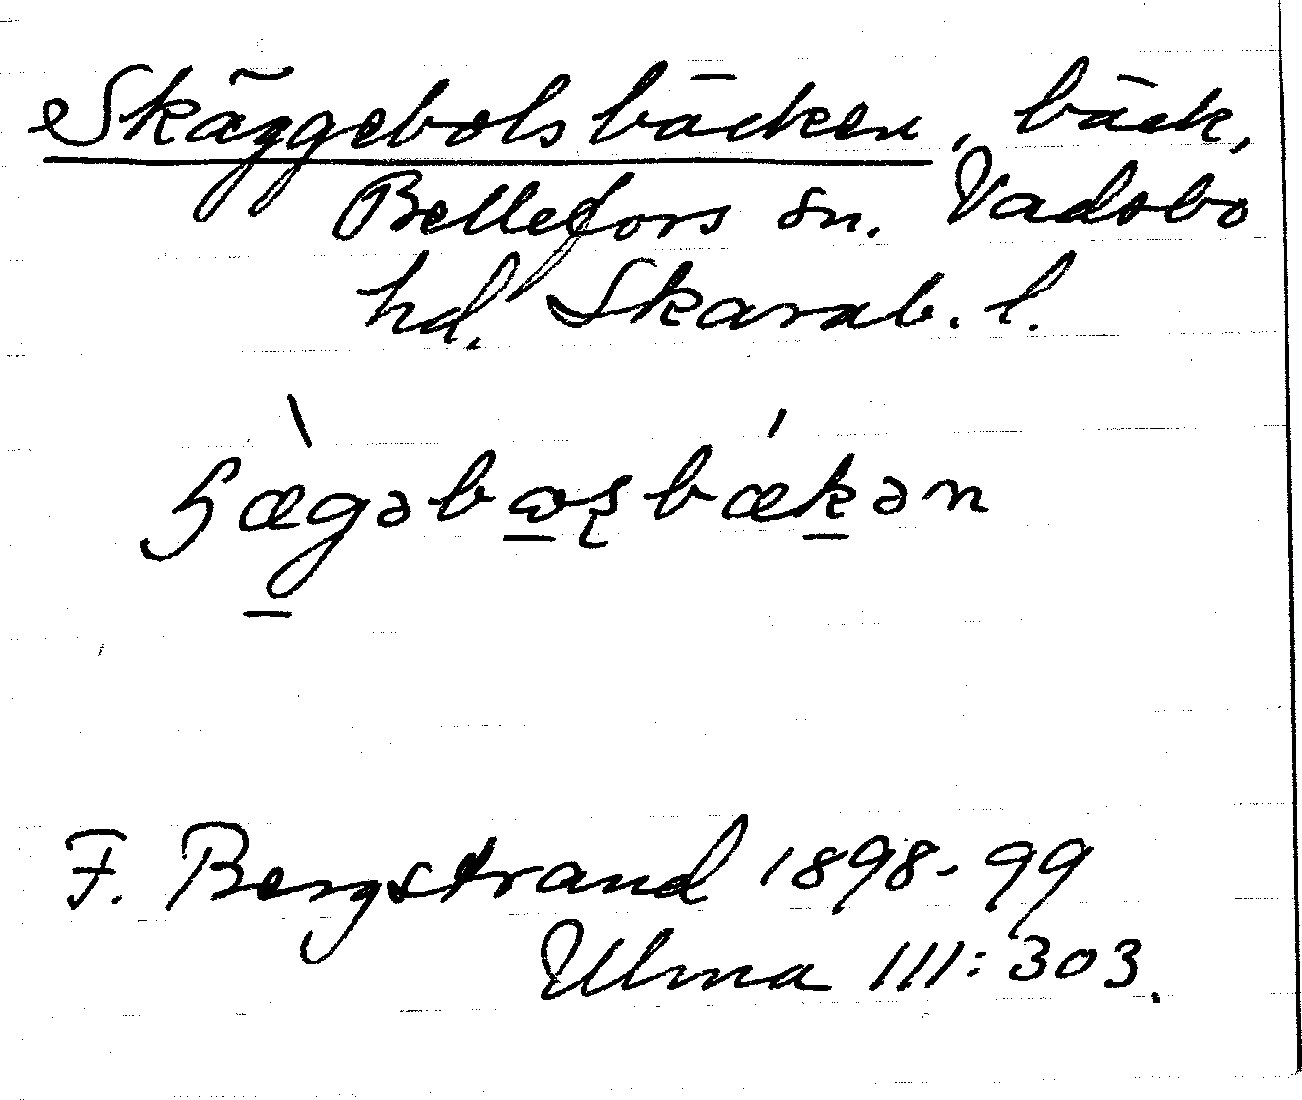 Skäggebolsbäcken, bäck,
Bellefors sn. Vadsbo
hd. Skarab. l.
F. Bergstrand 1898-99
Ulma 111:303.